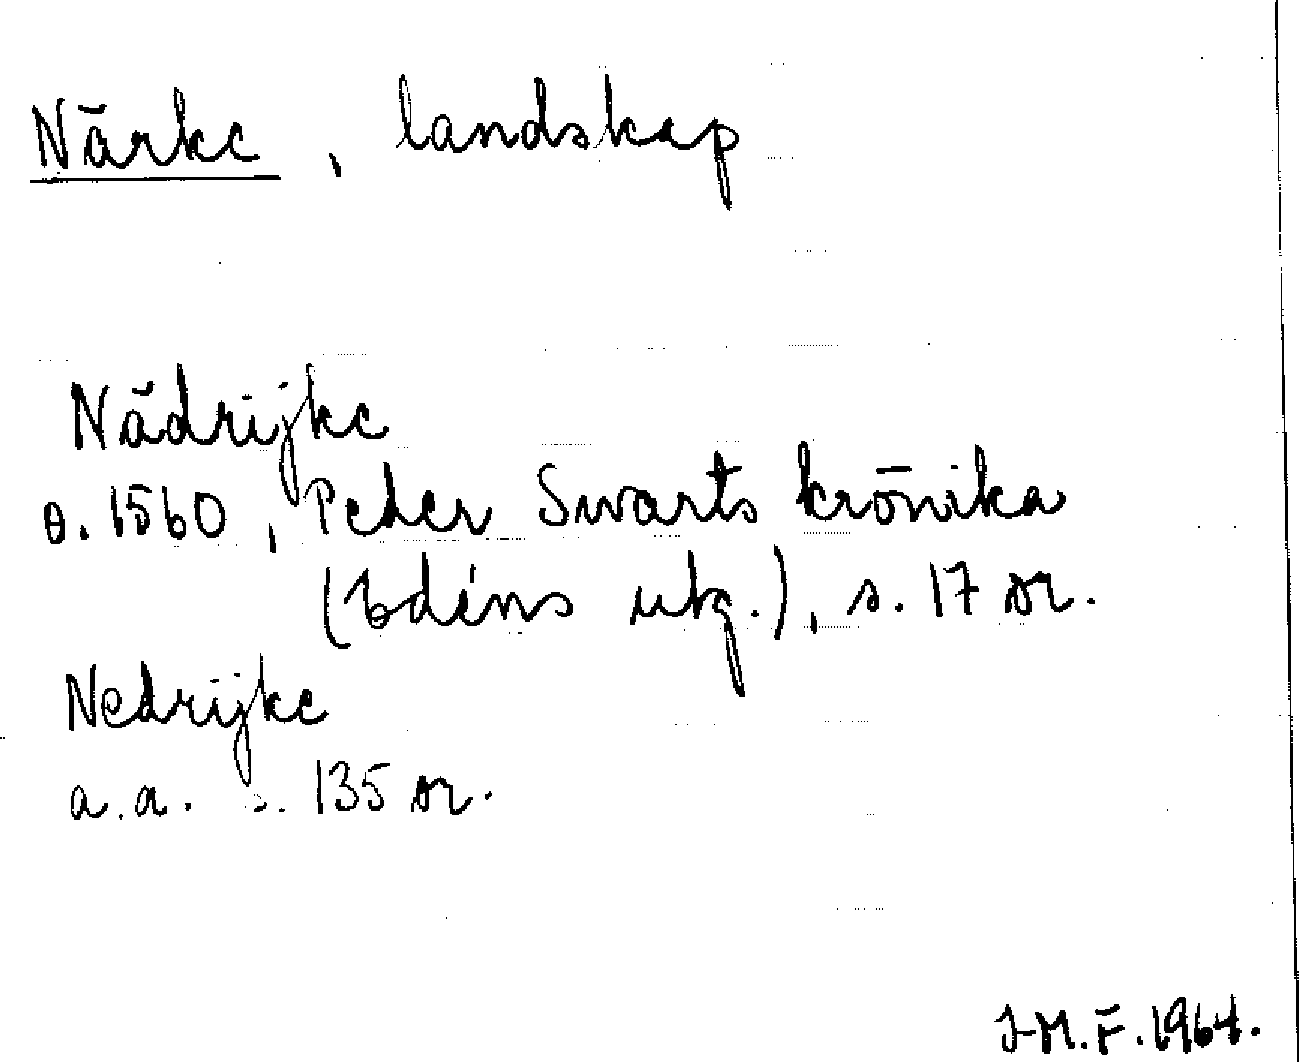 Närke, landskap
Nädrijke
o. 1560, Peder Swarts krönika
(Edéns utg.), s. 17 or.
Nedrijke
a.a. s. 135 or.
J-M.F. 1964.